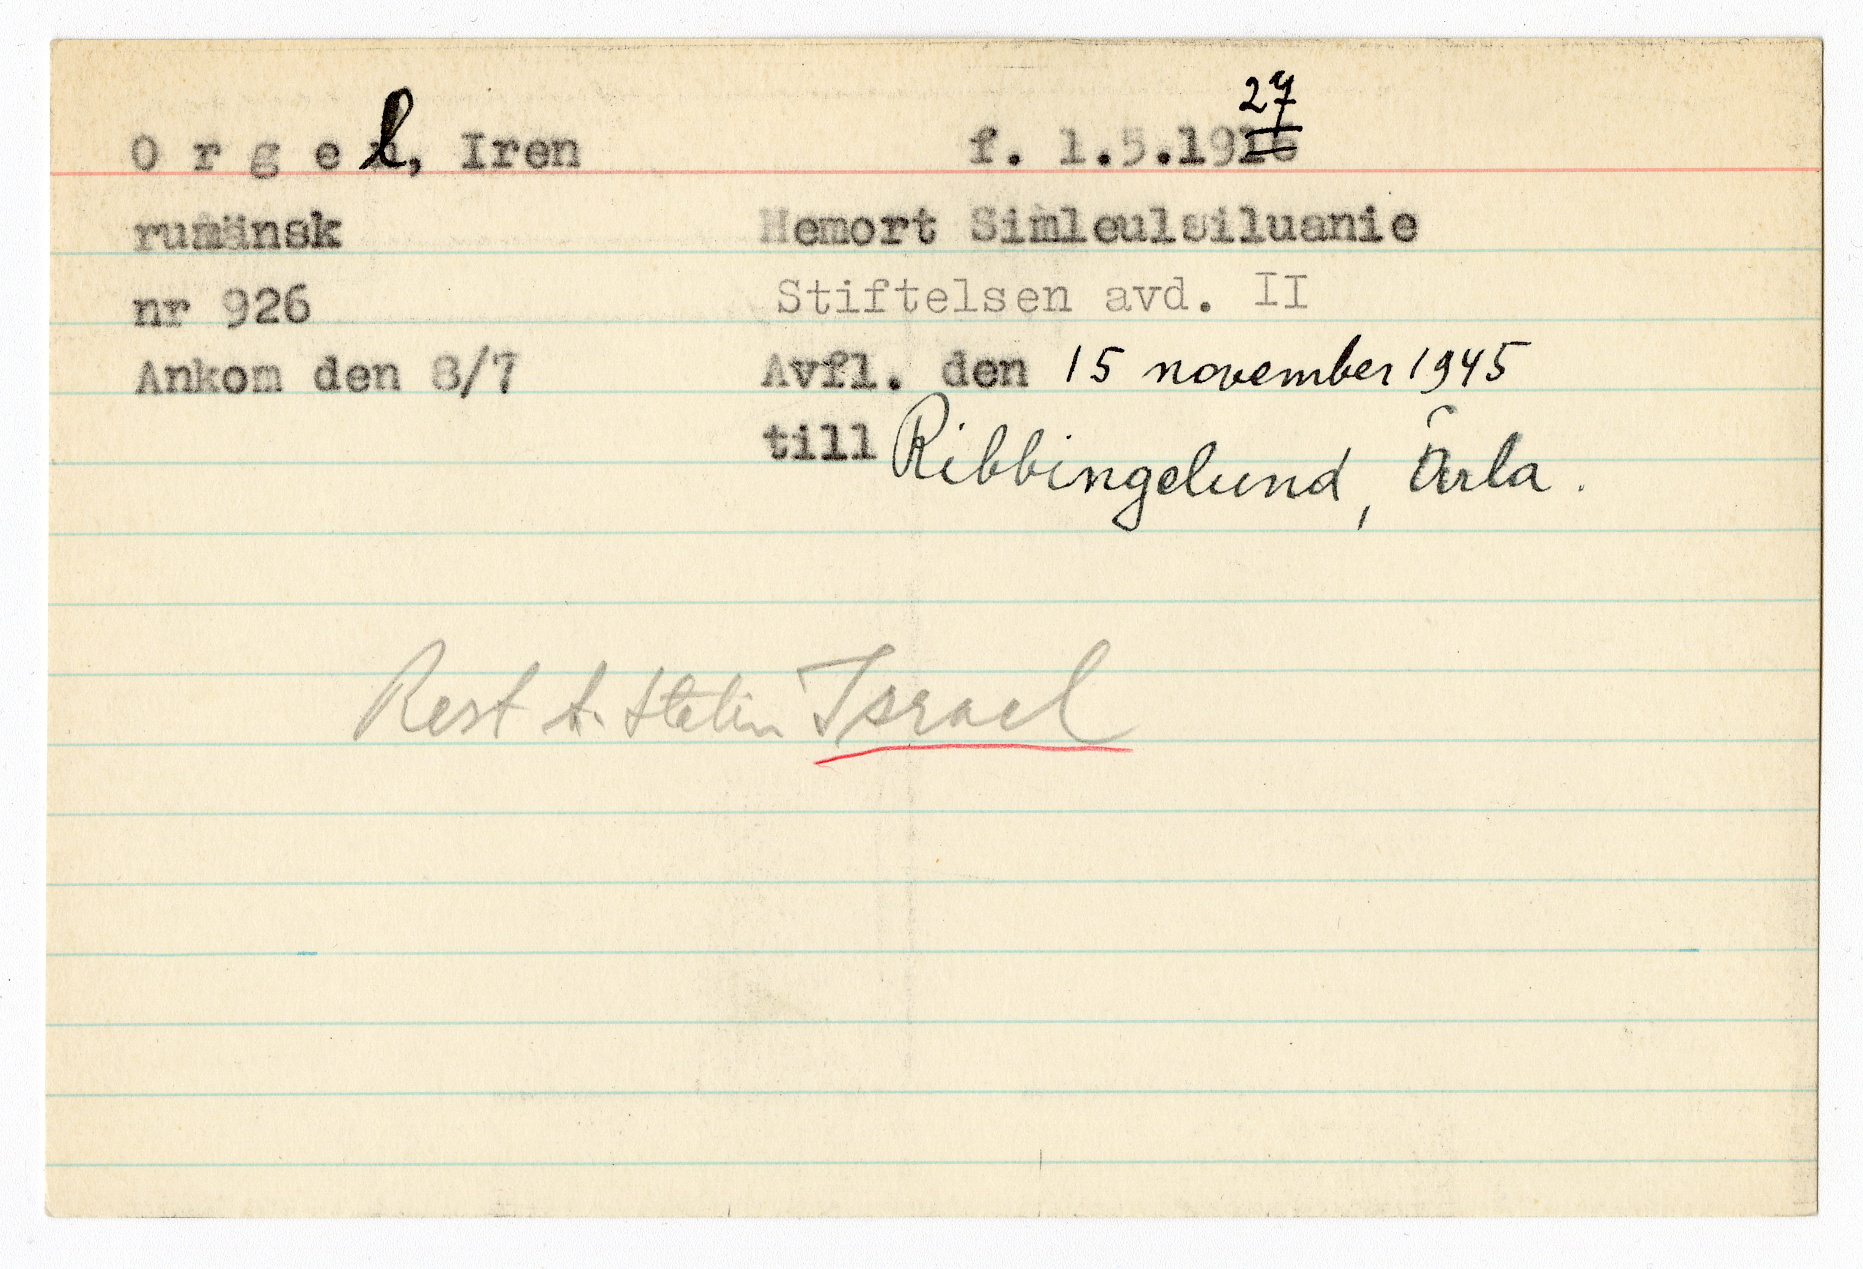 Orgel, Iren f. 1.5.1927
rumänsk Hemort Simleulsiluanie
nr 926 Stiftelsen avd. II
Ankom den 8/7 Avfl. den 15 november 1945
till Ribbingelund, Ärla.
Rest t. Israel